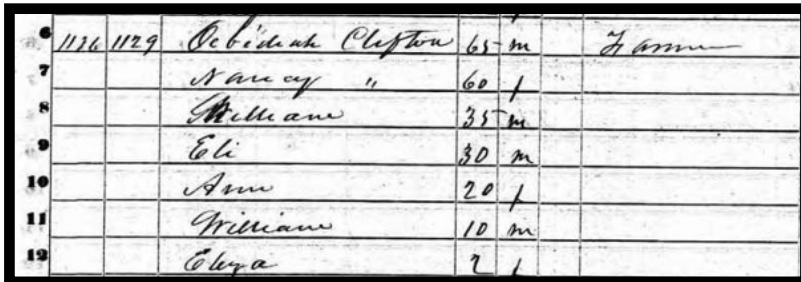 6 1126 1129 Oebidiah Clifton 65 m Farmer
7 Nancy " 60 f
8 William 35 m
9 Eli 30 m
10 Ann 20 f
11 William 10 m
12 Eliza 2 f